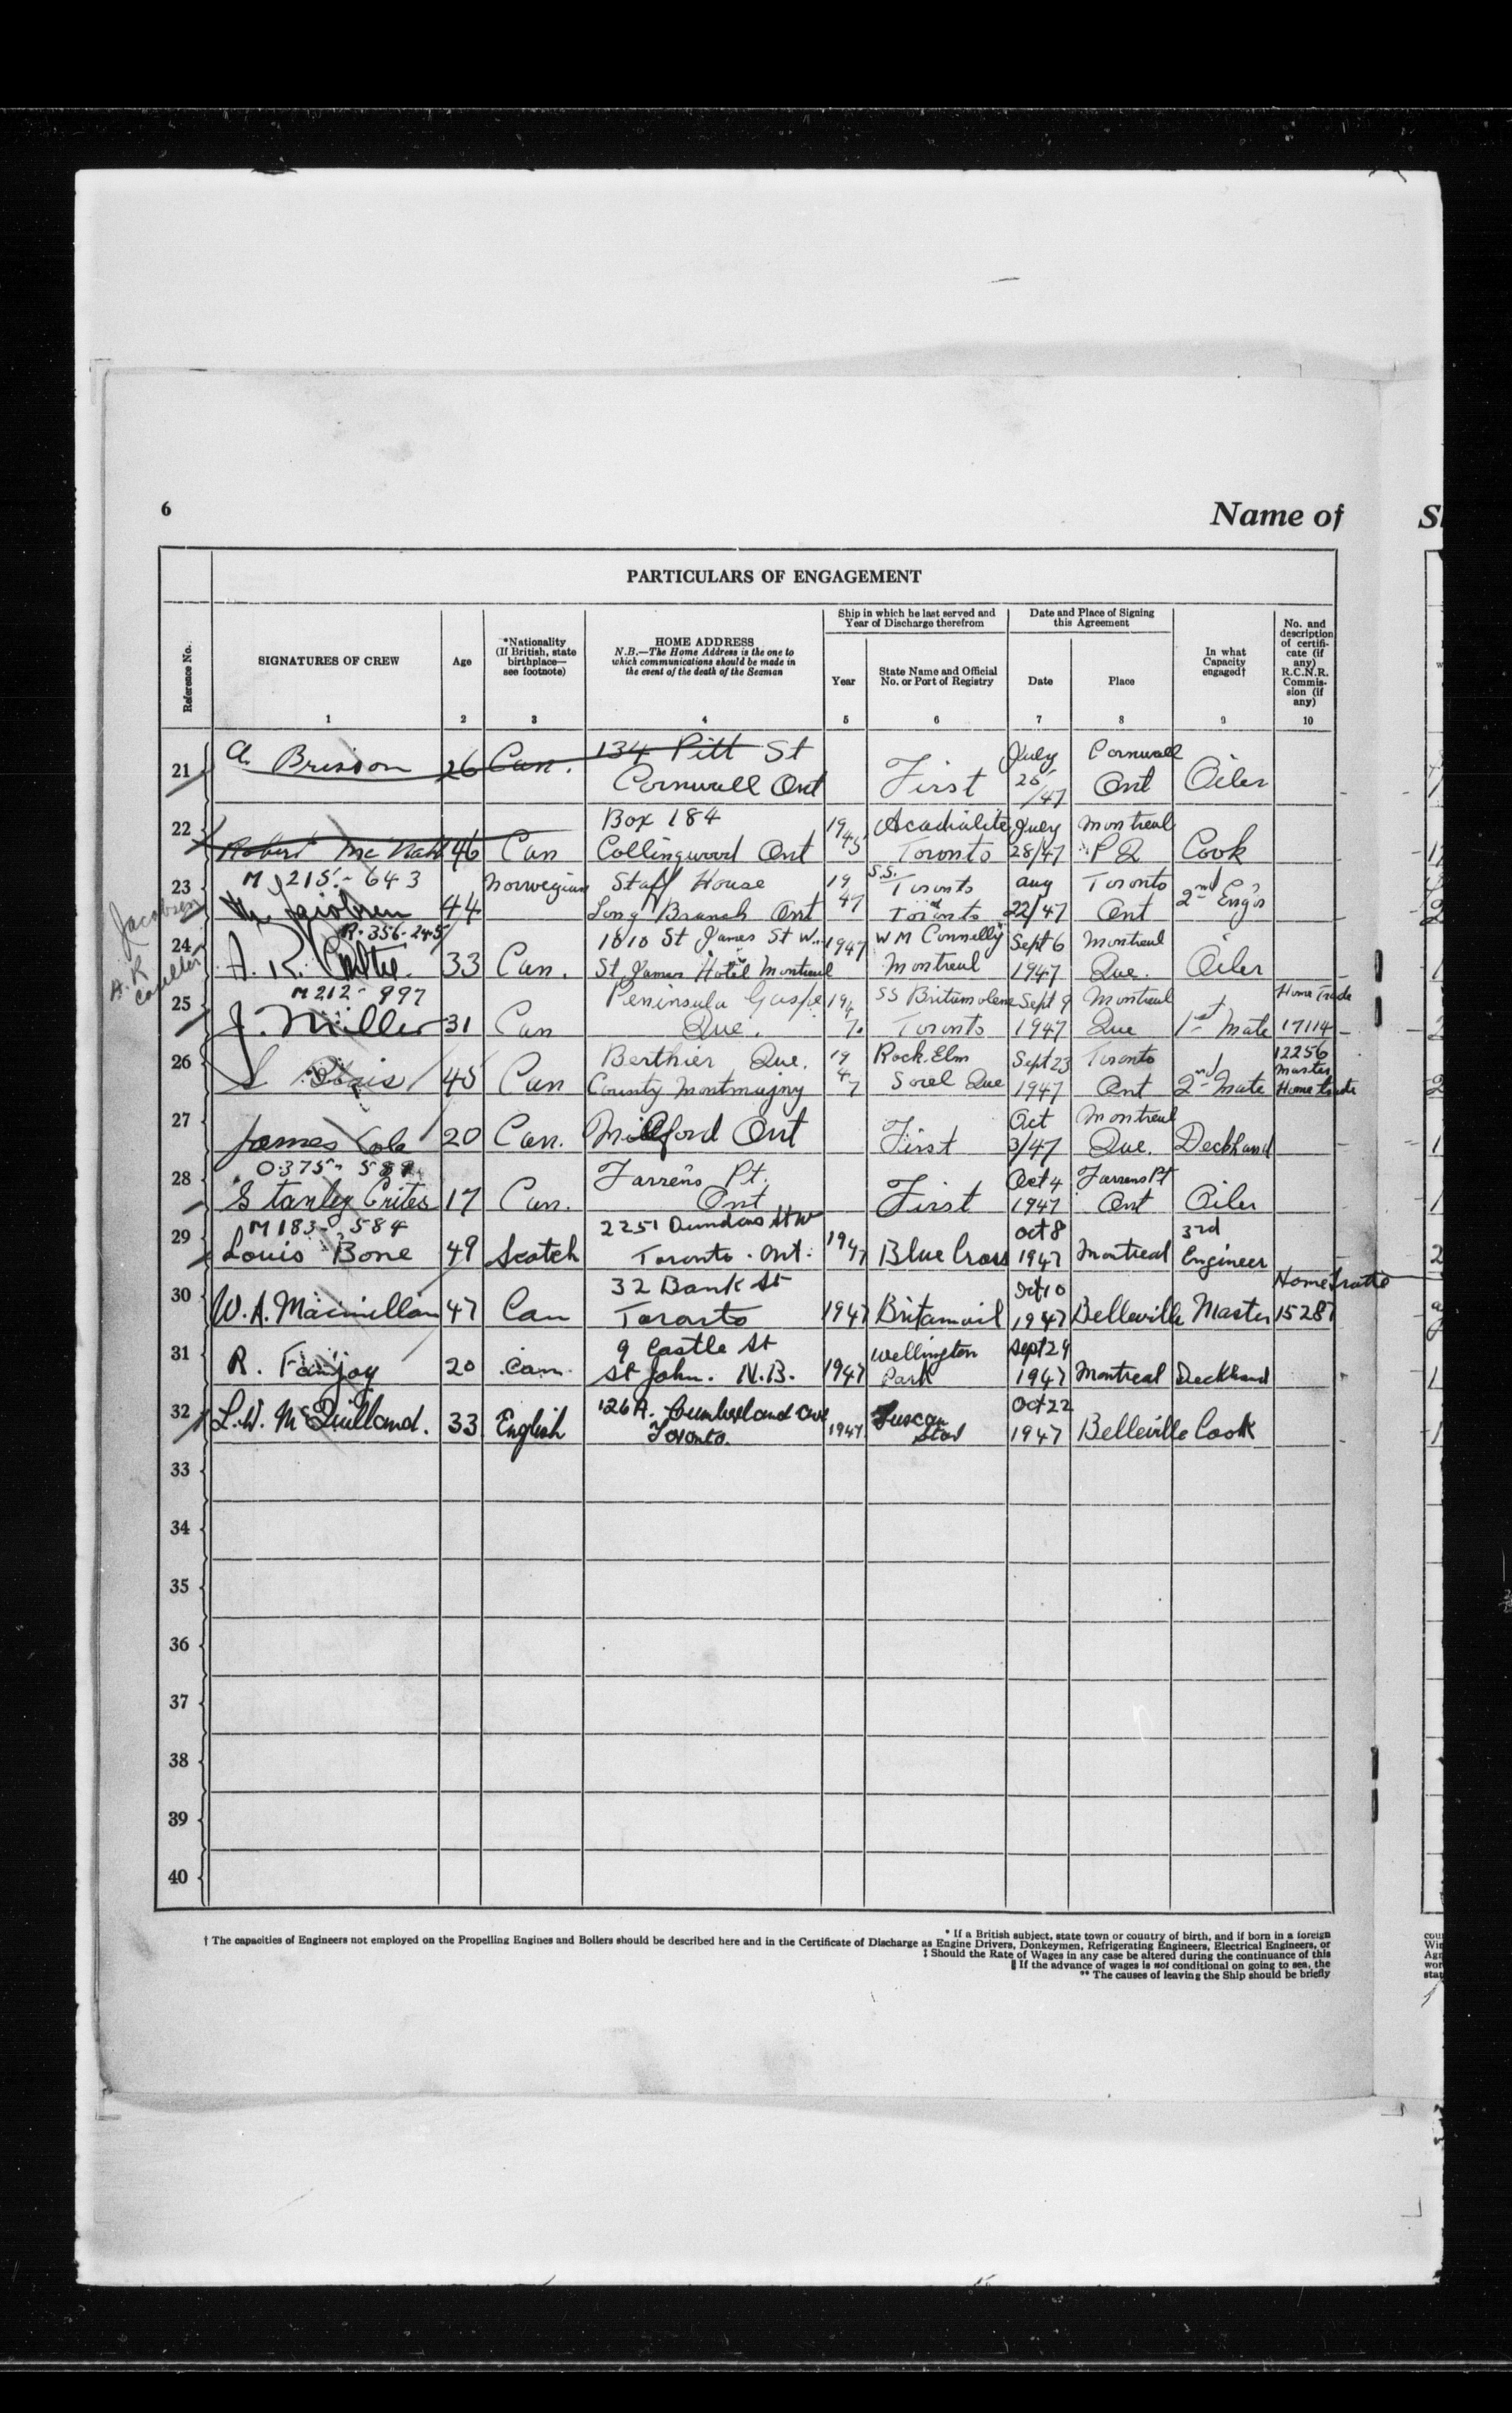 6
Name of
PARTICULARS OF ENGAGEMENT
Reference No.
SIGNATURES OF CREW
1
Age
2
*Nationality
(If British, state
birthplace—
see footnote)
3
HOME ADDRESS
N.B.—The Home Address is the one to
which communications should be made in
the event of the death of the Seaman
4
Ship in which he last served and
Year of Discharge therefrom
Year
5
State Name and Official
No. or Port of Registry
6
Date and Place of Signing
this Agreement
Date
7
Place
8
In what
Capacity
engaged†
9
No. and
description
of certifi-
cate (if
any)
R.C.N.R.
Commis-
sion (if
any)
10
21 A. Brisson 26 Can. 134 Pitt St
Cornwall Ont First July 25/47 Cornwall Ont Oiler
22 Robert Mc 46 Can Box 184
Collingwood Ont 1945 Acadialite Toronto July 28/47 Montreal P Q Cook
Jacobsen
23 M 215 - 643
Jacobsen 44 Norwegian Staff House
Long Branch Ont 1947 S.S. Toronto Toronto Aug 22/47 Toronto Ont 2nd Eng'r
A. R. Coulter
24 R-356-245
A. R. 33 Can. 1010 St James St W.
St James Hotel Montreal 1947 W M Connelly Montreal Sept 6 1947 Montreal Que. Oiler
25 M 212 - 997
J. Miller 31 Can Peninsula Gaspe
Que. 1947 SS Britamolene Toronto Sept 9 1947 Montreal Que 1st Mate Home Trade 17114
26 S Blais 45 Can Berthier Que.
County Montmagny 1947 Rock Elm Sorel Que Sept 23 1947 Toronto Ont 2nd Mate 12256 Master Home Trade
27 James Cole 20 Can. Milford Ont First Oct 3/47 Montreal Que. Deckhand
28 0375-
Stanley Crites 17 Can. Farren's Pt.
Ont First Oct 4 1947 Farrens Pt Ont Oiler
29 M 183 - 584
Louis Bone 49 Scotch 2251 Dundas St W
Toronto. Ont. 1947 Blue Cross Oct 8 1947 Montreal 3rd Engineer
30 W. A. Macmillan 47 Can 32 Bank St
Toronto 1947 Britamoil Oct 10 1947 Belleville Master Home Trade 15287
31 R. Fanjoy 20 Can. 9 Castle St
St John. N.B. 1947 Wellington Park Sept 29 1947 Montreal Deckhand
32 L.W. McQuilland. 33 English 126 A. Cumberland Ave
Toronto. 1947 Tuscan Star Oct 22 1947 Belleville Cook
33
34
35
36
37
38
39
40
* If a British subject, state town or country of birth, and if born in a foreign
† The capacities of Engineers not employed on the Propelling Engines and Boilers should be described here and in the Certificate of Discharge as Engine Drivers, Donkeymen, Refrigerating Engineers, Electrical Engineers, or
‡ Should the Rate of Wages in any case be altered during the continuance of this
‖ If the advance of wages is not conditional on going to sea, the
** The causes of leaving the Ship should be briefly